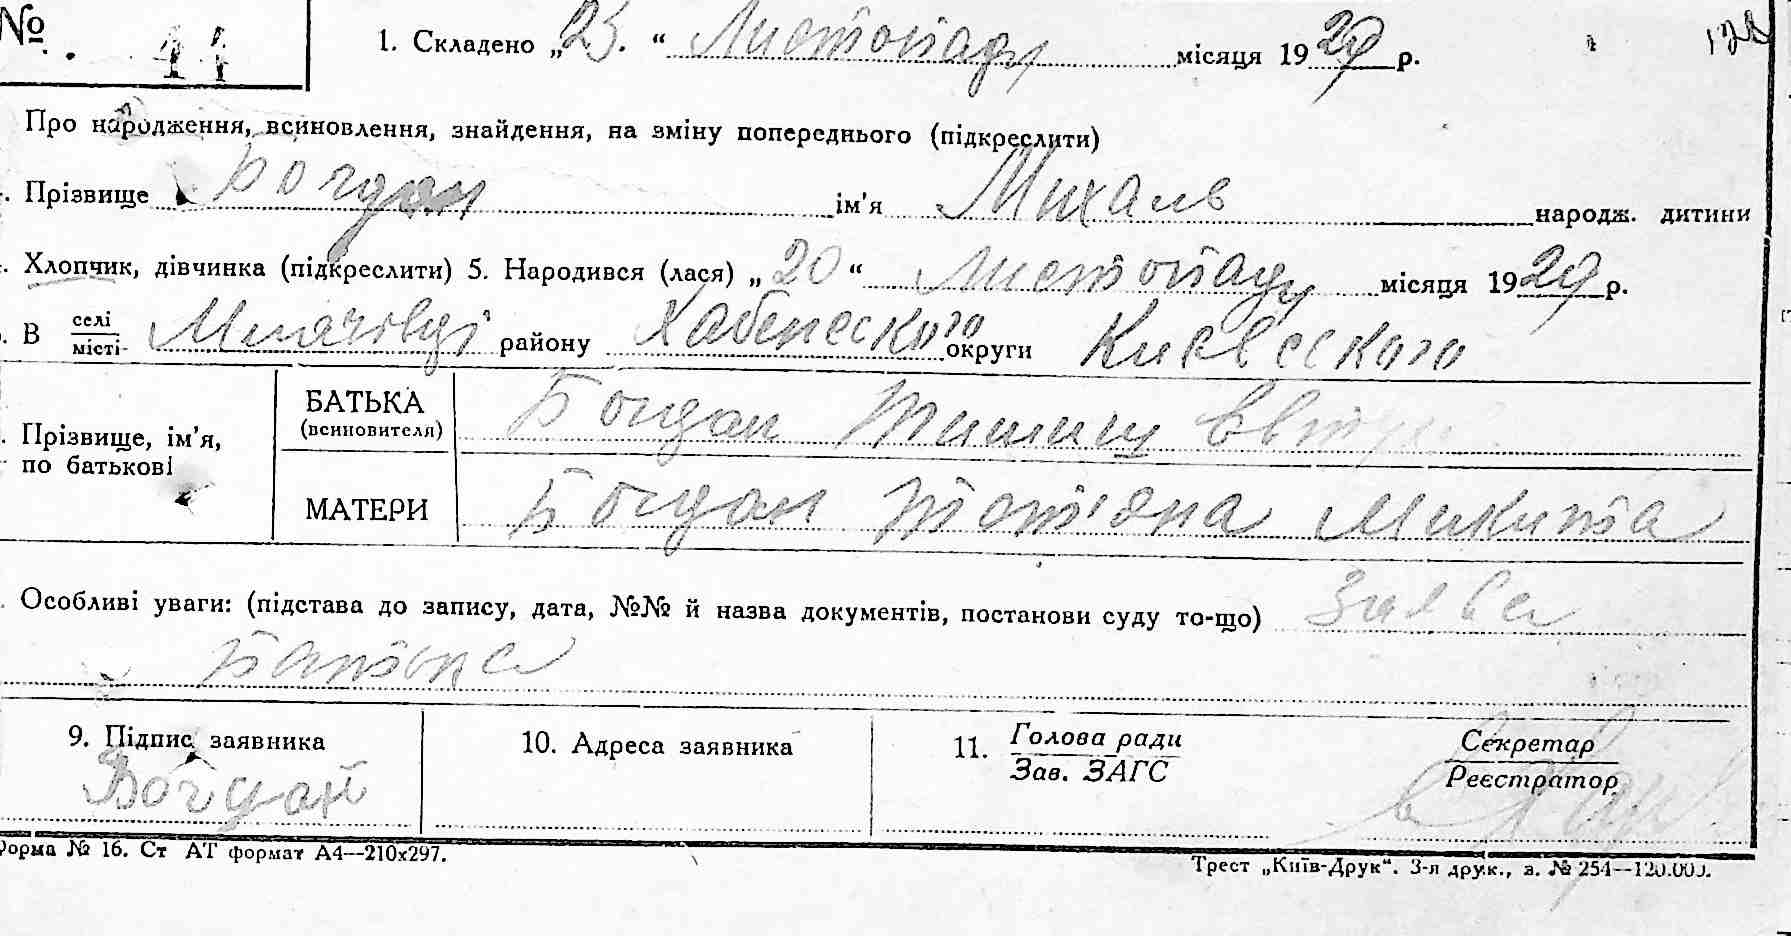 № 44 1. Складено „23. “ Листопаду місяця 1929 р. 128
Про народження, всиновлення, знайдення, на зміну попереднього (підкреслити)
Прізвище Богдан ім'я Михаль народж. дитини
Хлопчик, дівчинка (підкреслити) 5. Народився (лася) „20“ Листопаду місяця 1929 р.
В селі місті Милячівці району Хабенеского округи Киевеского
Прізвище, ім'я, по батькові
БАТЬКА (всиновителя) Богдан Тимиш
МАТЕРИ Богдан Тотіяна Микита
Особливі уваги: (підстава до запису, дата, №№ й назва документів, постанови суду то-що) Заява
Батька
9. Підпис заявника 10. Адреса заявника 11. Голова ради Секретар
Зав. ЗАГС Реєстратор
Богдан
Форма № 16. Ст АТ формат А4—210х297.
Трест „Київ-Друк“. 3-я друк., з. № 254—120.000.